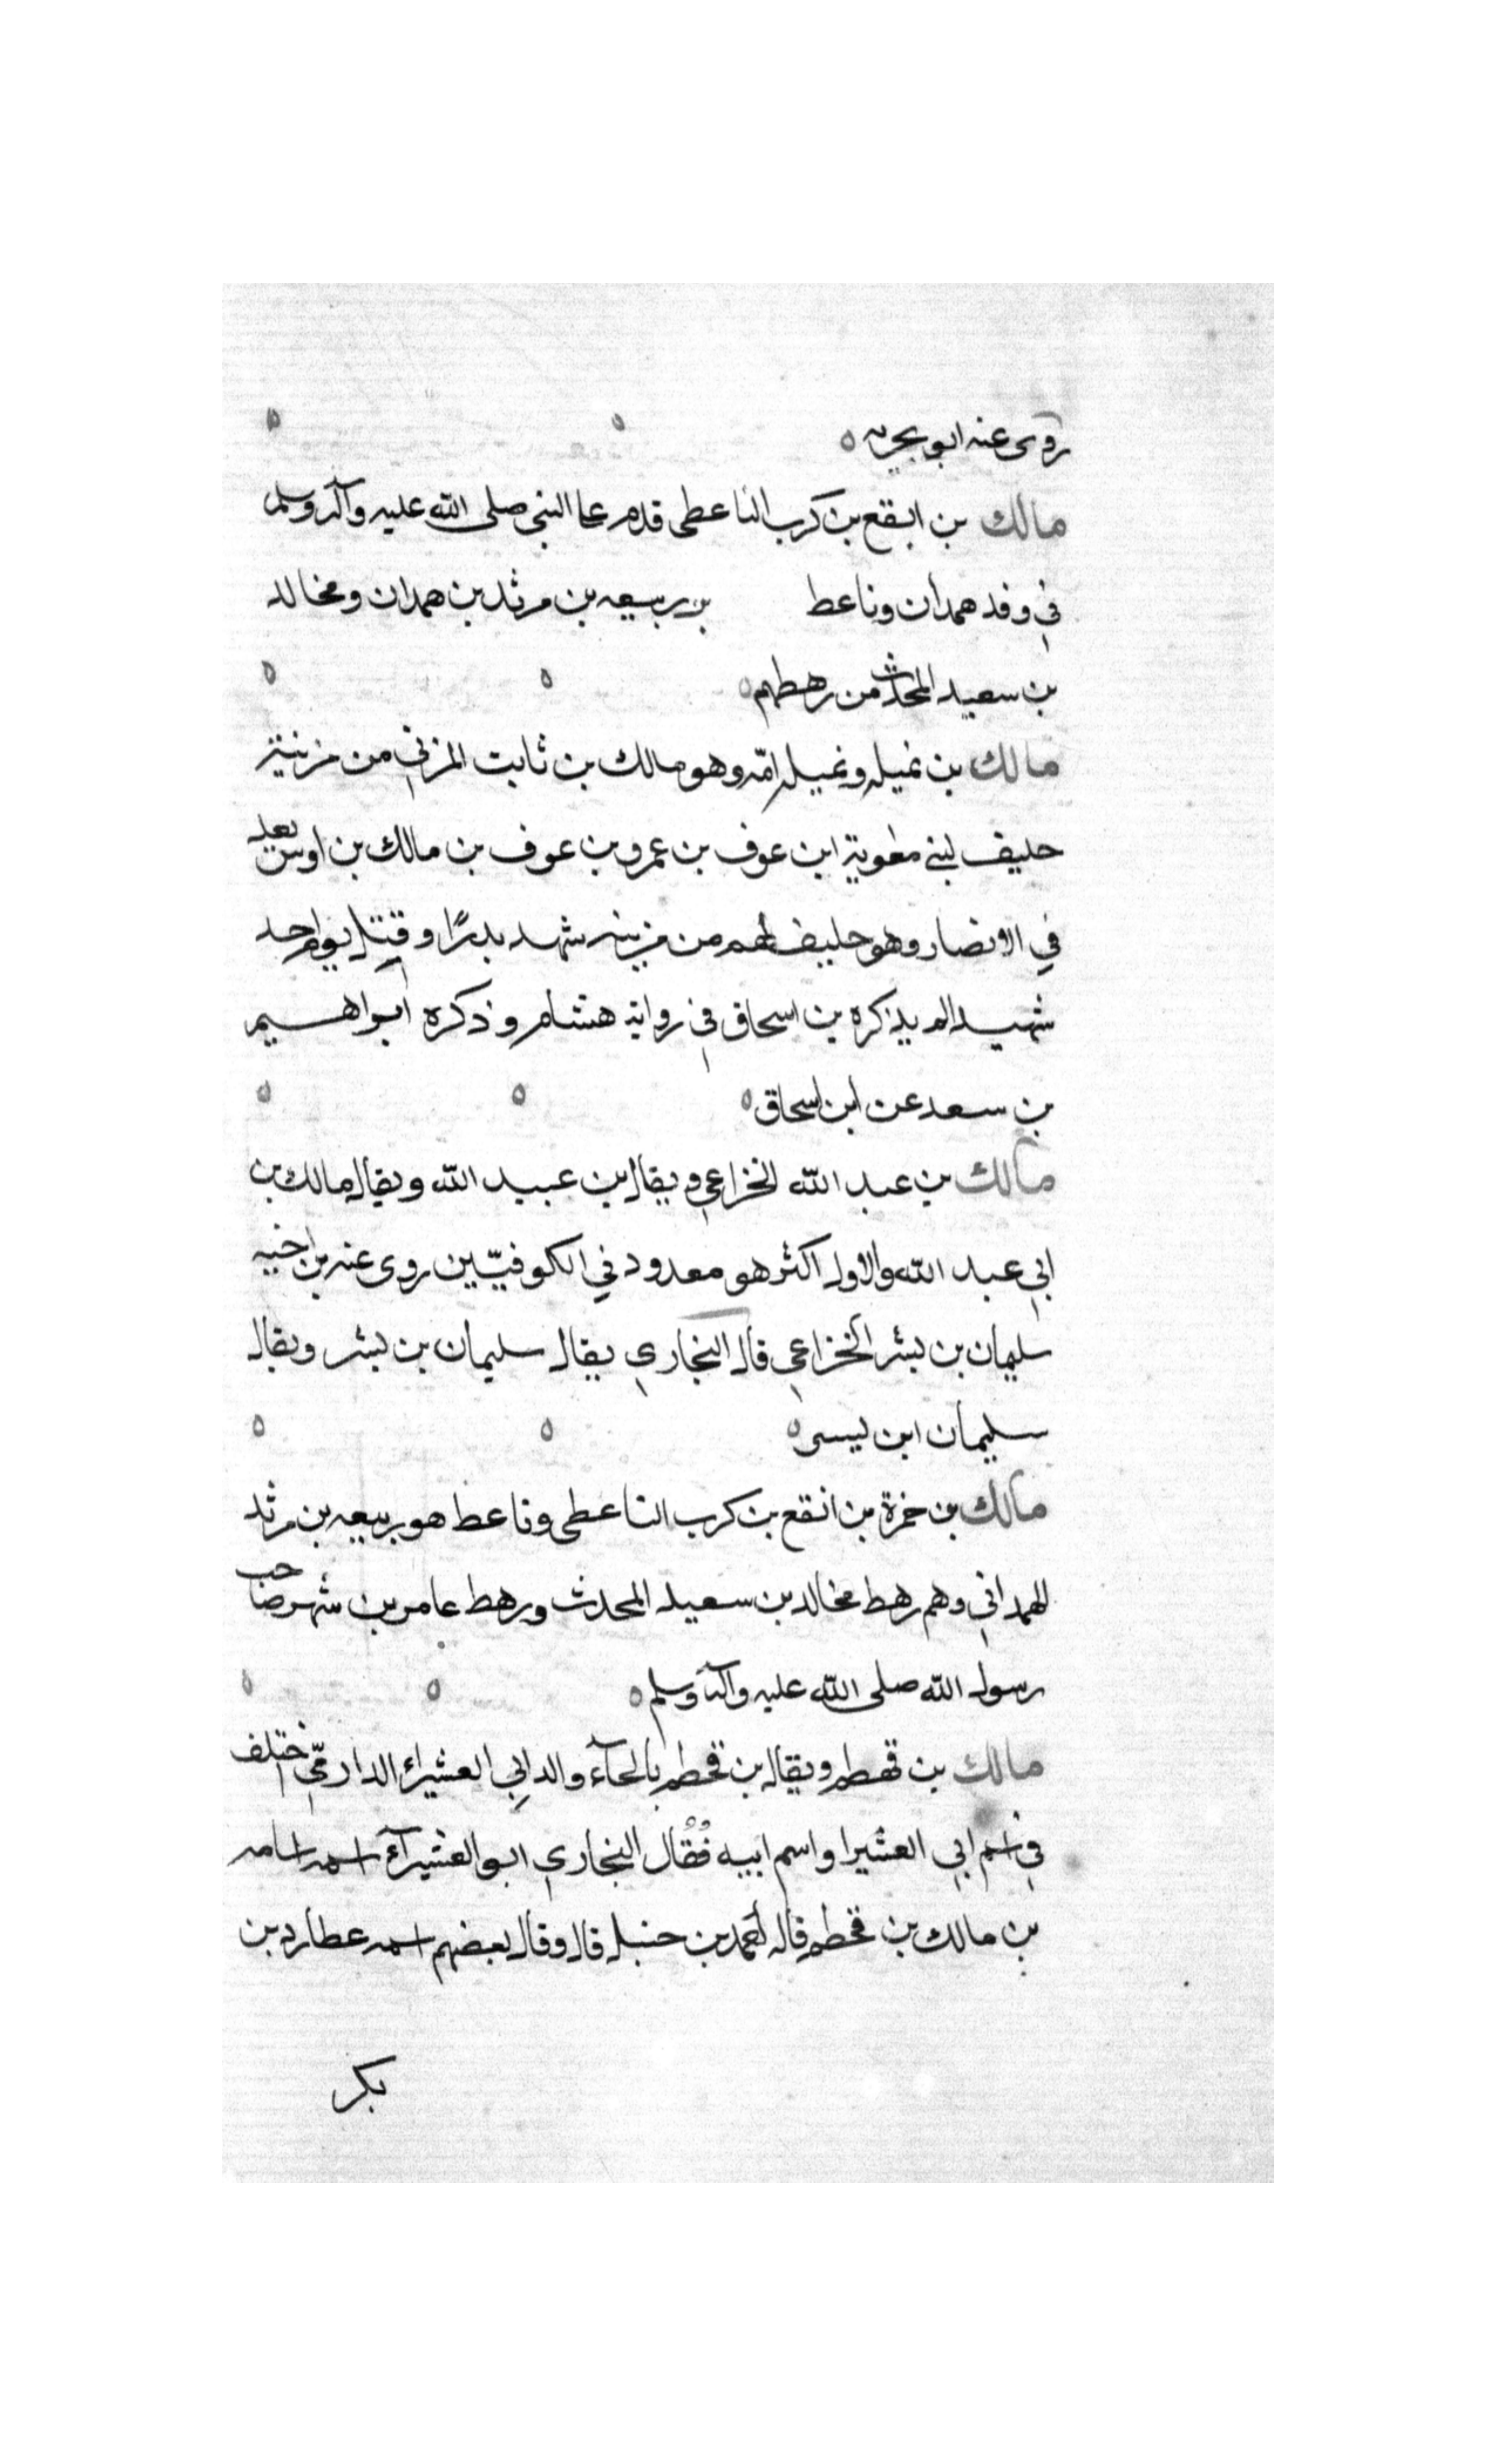 روى عنه ابو بحريه
مالك بن ابقع بن كرب الناعطى قدم على النبى صلى الله عليه وآله وسلم
في وفد همدان وناعط بن ربيعه بن مرثد بن همدان ومخالد
بن سعيد المحدث من رهطهم
مالك بن نميله ونميله امّه وهو مالك بن ثابت المزني من مزينة
حليف لبني معوية ابن عوف بن عمرو بن عوف بن مالك بن اوس يعد
في الانصار وهو حليف لهم من مزينه شهد بدرًا وقتل يوم احد
شهيدا لم يذكره بن اسحاق في رواية هشام وذكره ابراهيم
بن سعد عن ابن اسحاق
مالك بن عبد الله الخزاعي ويقال بن عبيد الله ويقال مالك بن
ابي عبد الله والاول اكثر هو معدود في الكوفيّين روى عنه بن اخيه
سليمان بن بشر الخزاعي قال البخاري يقال سليمان بن بشر ويقال
سليمان ابن ليسى
مالك بن خمرة بن انقع بن كرب الناعطى وناعط هو ربيعه بن مرثد
الهمداني وهم رهط مخالد بن سعيد المحدث ورهط عامر بن شهر صاحب
رسول الله صلى الله عليه وآله وسلم
مالك بن قهطم ويقال بن قحطم بالحآء والد ابي العشيراء الدارمّي اختلف
في اسم ابي العشيرا واسم ابيه فقال البخاري ابو العشيرآء اسمه اسامه
بن مالك بن قحطم قاله أحمد بن حنبل قال وقال بعضهم اسمه عطارد بن
بكر